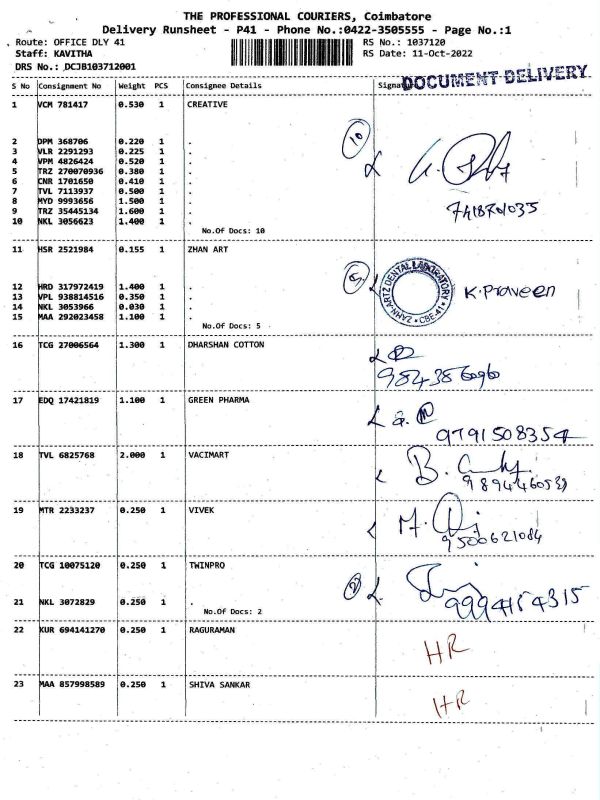 THE PROFESSIONAL COURIERS, Coimbatore
Delivery Runsheet - P41 - Phone No.:0422-3505555 - Page No.:1
Route: OFFICE DLY 41 RS No.: 1037120
Staff: KAVITHA RS Date: 11-Oct-2022
DRS No.: DCJB103712001
DOCUMENT DELIVERY
S No Consignment No Weight PCS Consignee Details
1 VCM 781417 0.530 1 CREATIVE
10
2 DPM 368706 0.220 1 .
3 VLR 2291293 0.225 1 .
4 VPM 4826424 0.520 1 .
5 TRZ 270070936 0.380 1 .
6 CNR 1701650 0.410 1 .
7 TVL 7113937 0.500 1 .
8 MYD 9993656 1.500 1 .
9 TRZ 35445134 1.600 1 .
7418701035
10 NKL 3056623 1.400 1 .
No.Of Docs: 10
11 HSR 2521984 0.155 1 ZHAN ART
5
ZHAN ARTZ DENTAL LABORATORY * CBE-41 *
K.Praveen
12 HRD 317972419 1.400 1 .
13 VPL 938814516 0.350 1 .
14 NKL 3053966 0.030 1 .
15 MAA 292023458 1.100 1 .
No.Of Docs: 5
16 TCG 27006564 1.300 1 DHARSHAN COTTON
17 EDQ 17421819 1.100 1 GREEN PHARMA
9791508354
18 TVL 6825768 2.000 1 VACIMART
19 MTR 2233237 0.250 1 VIVEK
9500621084
20 TCG 10075120 0.250 1 TWINPRO
2
9994154315
21 NKL 3072829 0.250 1 .
No.Of Docs: 2
22 KUR 694141270 0.250 1 RAGURAMAN
HR
23 MAA 857998589 0.250 1 SHIVA SANKAR
HR